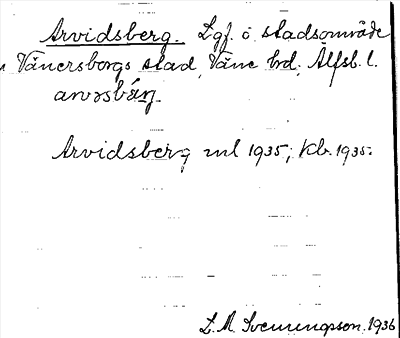 Arvidsberg. Lgf. å stadsområde
Vänersborgs stad, Väne hd, Älfsb. l.
Arvidsberg ml 1935; kb. 1935.
1936